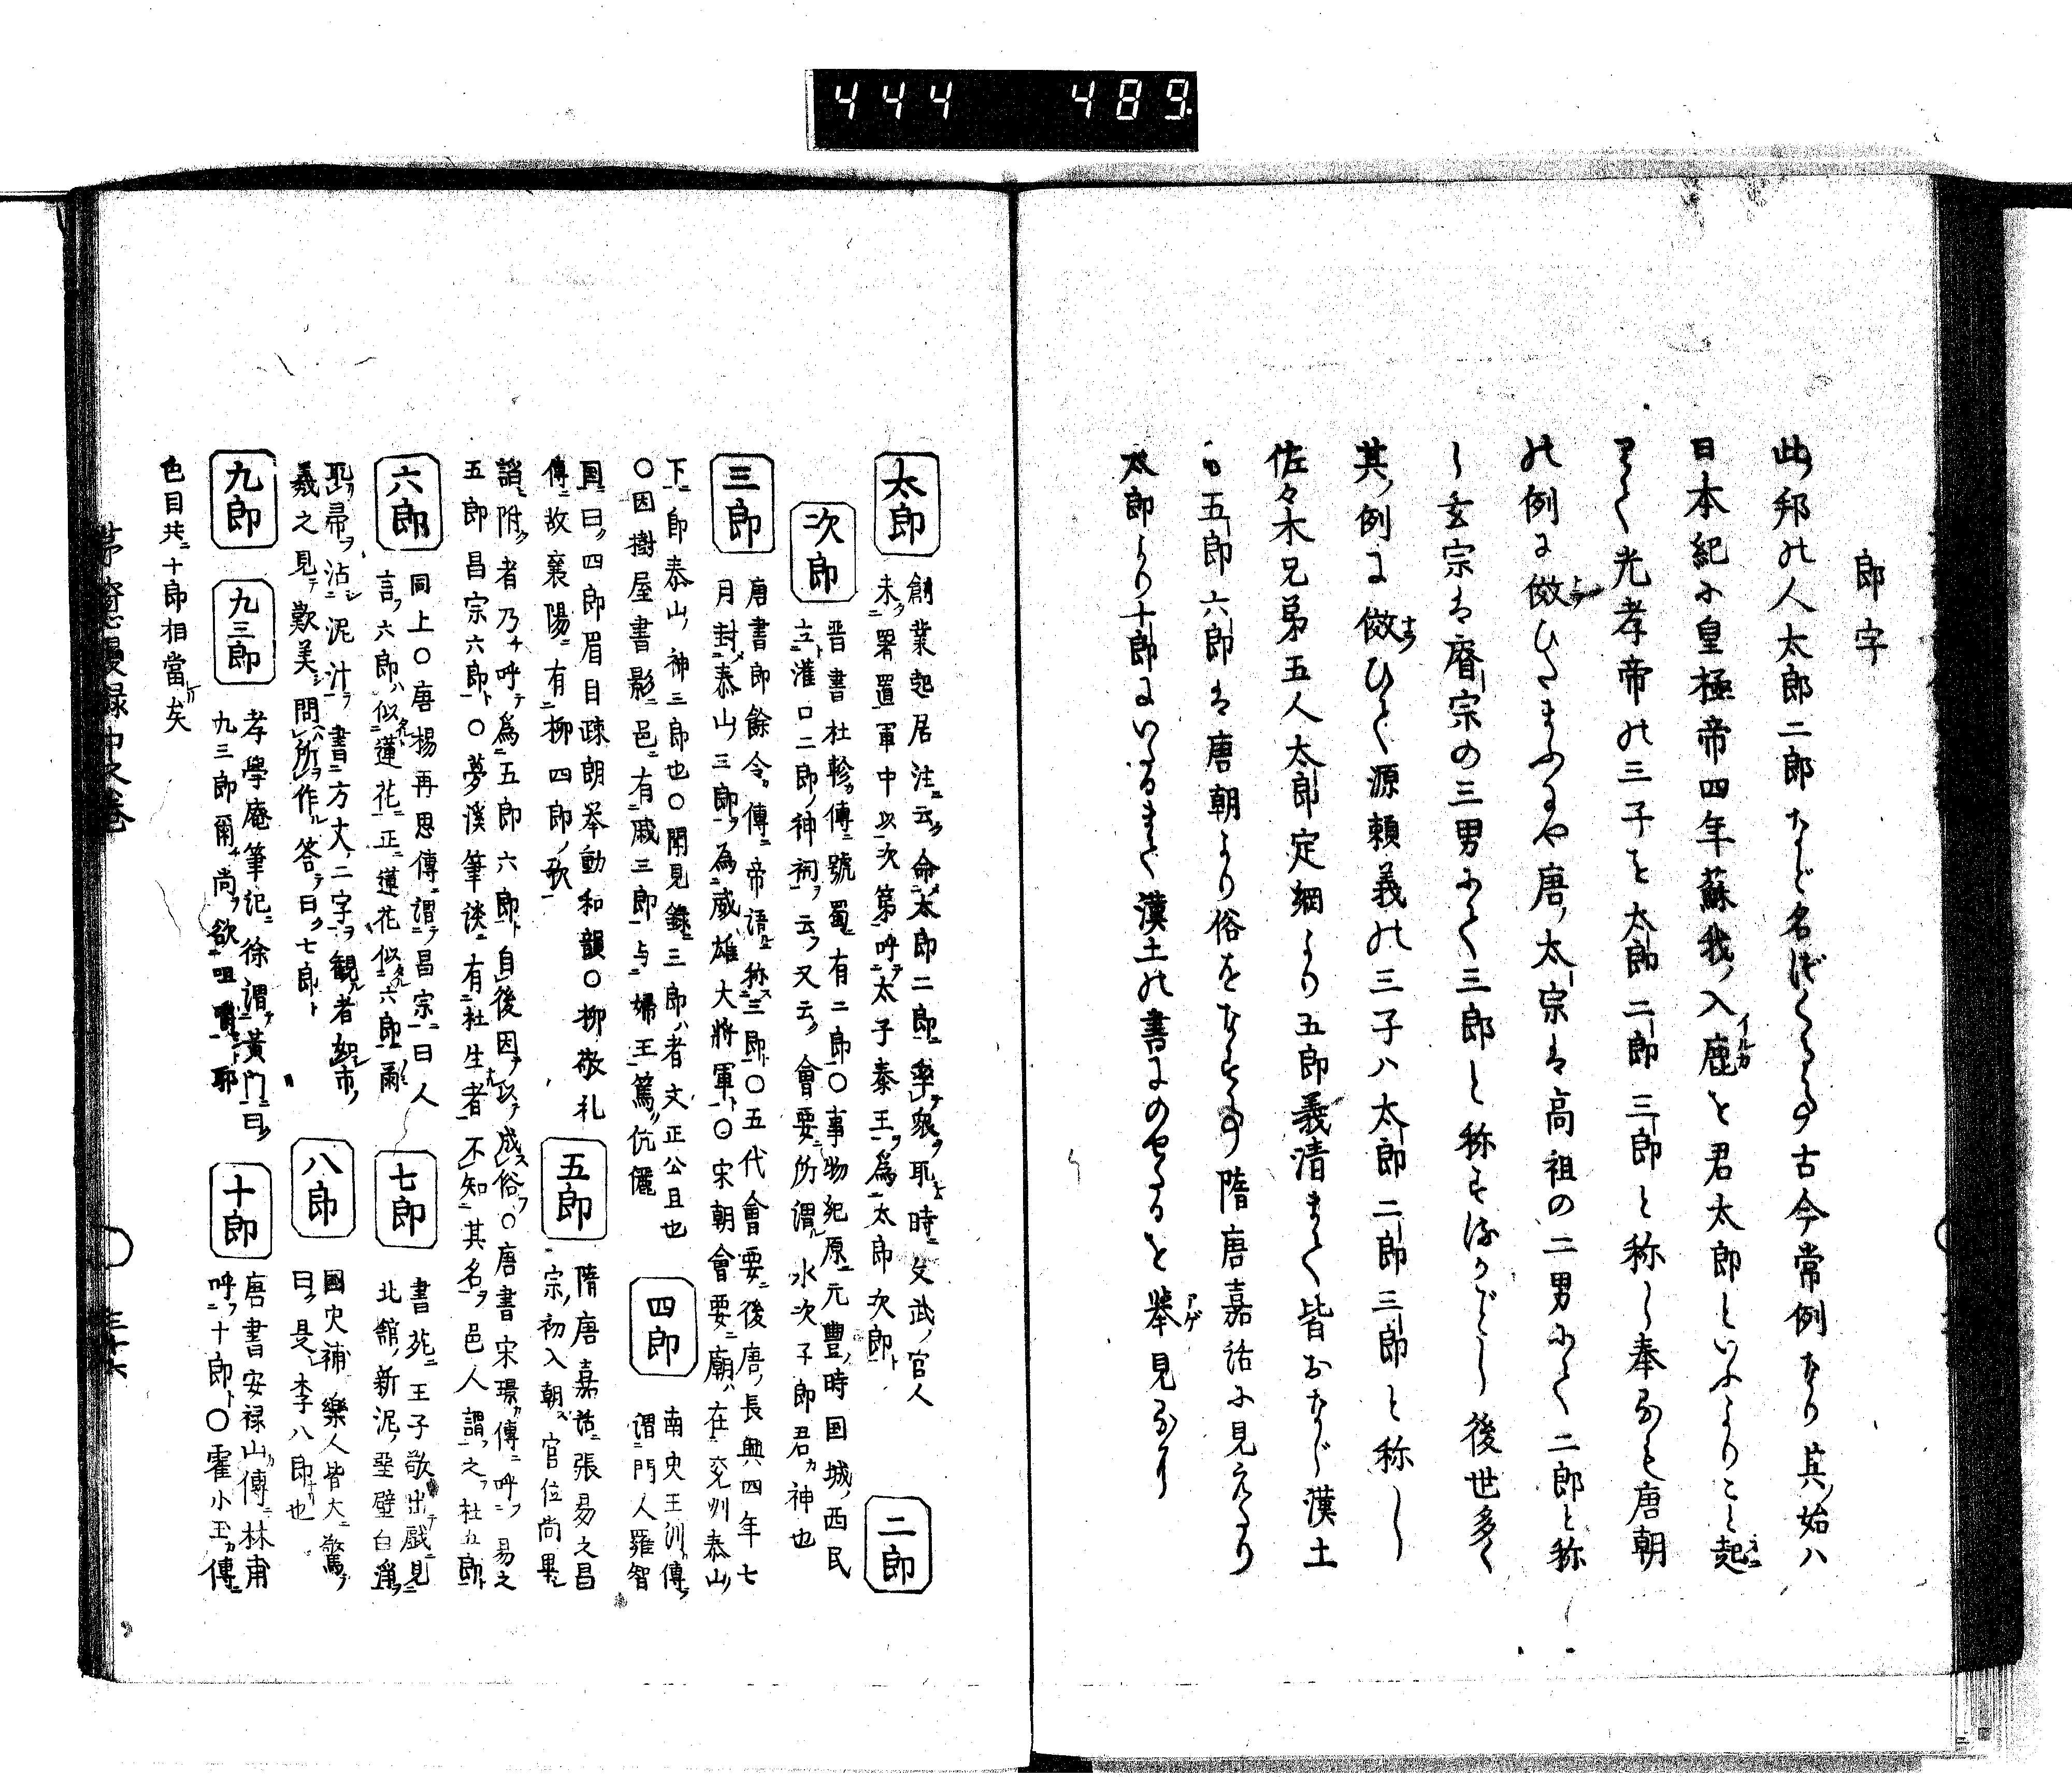 444 489
郎字
此ノ邦の人太郎二郎など名づくる事古今常例なり其ノ始ハ
日本紀に皇極帝四年蘇我ノ入鹿を君太郎といふよりこと起
りて光孝帝の三子を太郎二郎三郎と称し奉るも唐朝
の例に倣ひたまふにや唐ノ太宗は高祖の二男にて二郎と称
し玄宗は睿宗の三男にて三郎と称する
がごとし後世多く
其ノ例に倣ひて源頼義の三子ハ太郎二郎三郎と称し
佐々木兄弟五人太郎定綱より五郎義清まで皆おなじ漢土
も五郎六郎は唐朝より俗をなす事隋唐嘉話に見えたり
太郎より十郎にいたるまで漢土の書にのせたるを挙見るなり
太郎
創業起居注ニ云フ命太郎二郎率衆取時ニ文武ノ官人
未署置軍中以次第呼太子秦王為太郎次郎
二郎
次郎
晋書杜軫傳ニ號蜀有二郎〇事物紀原ニ元豊ノ時国城ノ西民
立灌口二郎ノ神祠云又云會要所謂水次子郎君神也
三郎
唐書郎餘令傳ニ帝語称三郎〇五代會要ニ後唐ノ長興四年七
月封泰山三郎為威雄大將軍〇宋朝會要ニ廟在兗州泰山ノ
下ニ即泰山ノ神三郎也〇聞見録ニ三郎ハ者文正公且也
〇因樹屋書影ニ邑有戚三郎与婦王篤伉儷
四郎
南史王訓傳
謂門人羅智
國曰四郎眉目疎朗挙動和韻〇柳敬礼
傳ニ故襄陽ニ有柳四郎ノ歌
五郎
隋唐嘉話ニ張易之昌
宗ノ初入朝官位尚卑
諂附者乃呼為五郎六郎自後因以成俗〇唐書宋璟傳ニ呼易之
五郎昌宗六郎〇夢溪筆談ニ有杜生者不知其名邑人謂之杜五郎
六郎
同上〇唐楊再思傳ニ謂昌宗曰人
言六郎似蓮花正蓮花似六郎爾
七郎
書苑ニ王子敬出戯見
北館ノ新泥堊壁白淨
取帚沾泥汁書方丈ノ二字観者如市
羲之見歎美問所作答曰七郎
八郎
國史補樂人皆大驚
曰是李八郎也
九郎
九三郎
孝學庵筆記ニ徐謂黄門曰
九三郎爾尚欲咀嚼耶
十郎
唐書安禄山傳ニ林甫
呼十郎〇霍小玉傳ニ
色目共十郎相當矣